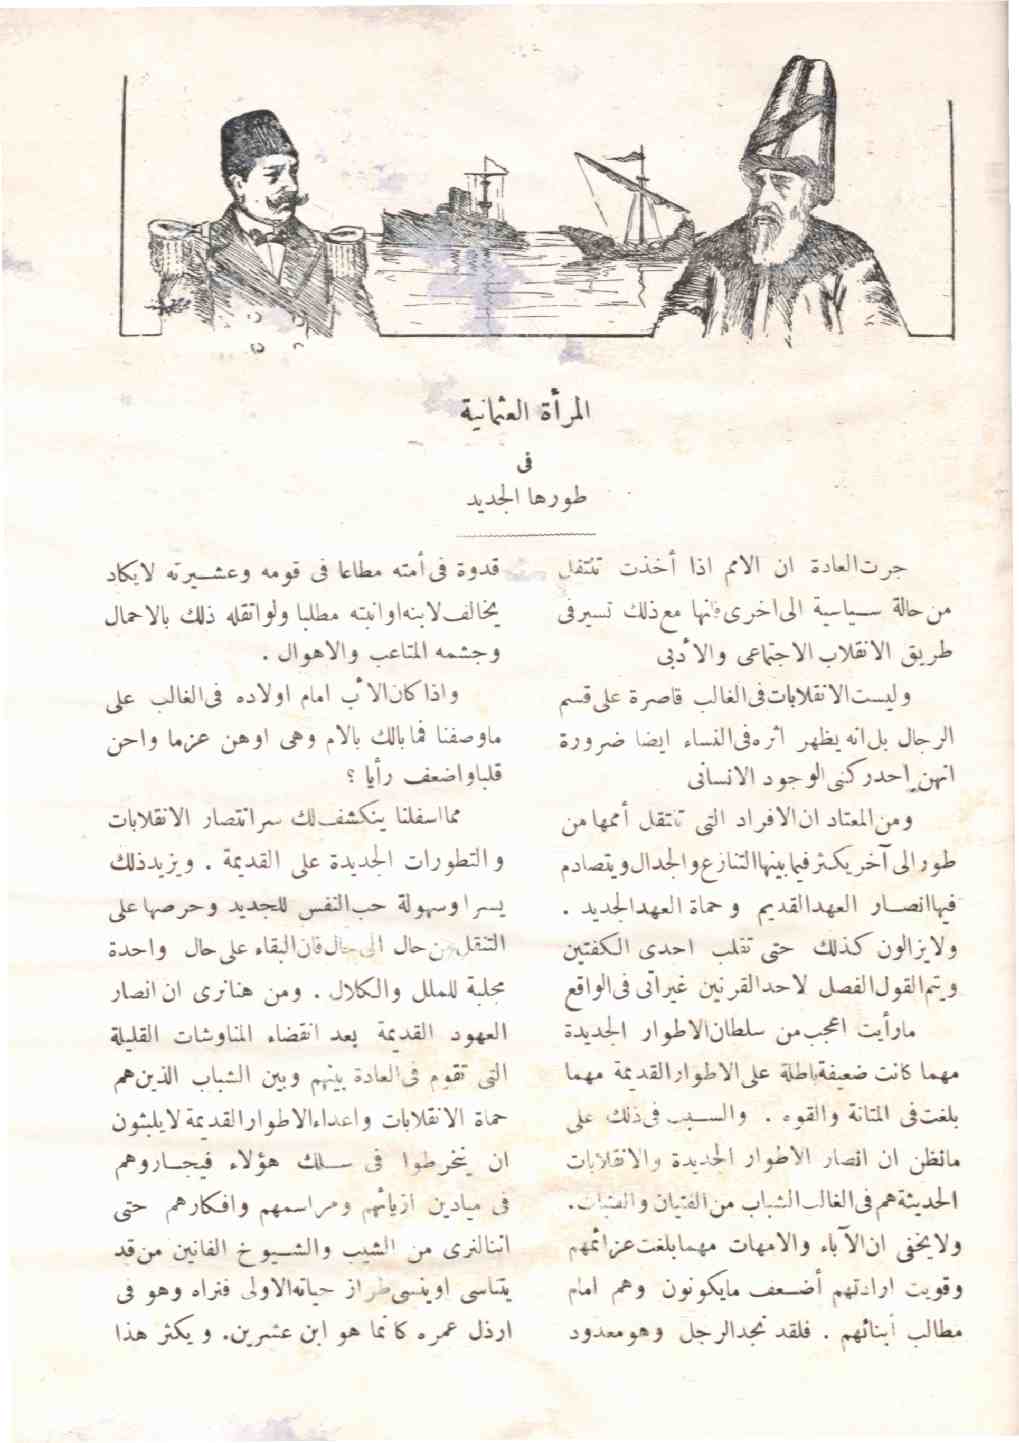 المرأة العثمانية
فى
طورها الجديد
جرت العادة ان الامم اذا أخذت تنتقل
من حالة سياسية الى اخرى فانها مع ذلك تسير فى
طريق الانقلاب الاجتماعى والأدبى
وليست الانقلابات فى الغالب قاصرة على قسم
الرجال بل انه يظهر اثره فى النساء ايضا ضرورة
انهن احد ركنى الوجود الانسانى
ومن المعتاد ان الافراد التى تنتقل أممها من
طور الى آخر يكثر فيما بينها التنازع والجدال ويتصادم
فيها انصار العهد القديم وحماة العهد الجديد .
ولا يزالون كذلك حتى تغلب احدى الكفتين
ويتم القول الفصل لاحد القرنين غير اتى فى الواقع
مارأيت اعجب من سلطان الاطوار الجديدة
مهما كانت ضعيفة باطلة على الاطوار القديمة مهما
بلغت فى المتانة والقوه . والسبب فى ذلك على
مانظن ان انصار الاطوار الجديدة والانقلابات
الحديثة هم فى الغالب الشباب من الفتيان والفتيات.
ولا يخفى ان الآباء والامهات مهما بلغت عزائمهم
وقويت ارادتهم أضعف مايكونون وهم امام
مطالب أبنائهم . فلقد تجد الرجل وهو معدود
قدوة فى أمته مطاعا فى قومه وعشيرته لا يكاد
يخالف لابنه او ابنته مطلبا ولو اثقله ذلك بالاحمال
وجشمه المتاعب والاهوال .
واذا كان الأب امام اولاده فى الغالب على
ماوصفنا فما بالك بالام وهى اوهن عزما واحن
قلبا واضعف رأيا ؟
مما اسفلنا ينكشف لك سر انتصار الانقلابات
والتطورات الجديدة على القديمة . ويزيد ذلك
يسرا وسهولة حب النفس للجديد وحرصها على
التنقل من حال الى حال فان البقاء على حال واحدة
مجلبة للملل والكلال . ومن هنا نرى ان انصار
العهود القديمة بعد انقضاء المناوشات القليلة
التى تقوم فى العادة بينهم وبين الشباب الذين هم
حماة الانقلابات واعداء الاطوار القديمة لايلبثون
ان ينخرطوا فى سلك هؤلاء فيجاروهم
فى ميادين ازيائهم ومراسمهم وافكارهم حتى
اننا لنرى من الشيب والشيوخ الفانين من قد
يتناسى او ينسى طراز حياته الاولى فنراه وهو فى
ارذل عمره كانما هو ابن عشرين. ويكثر هذا